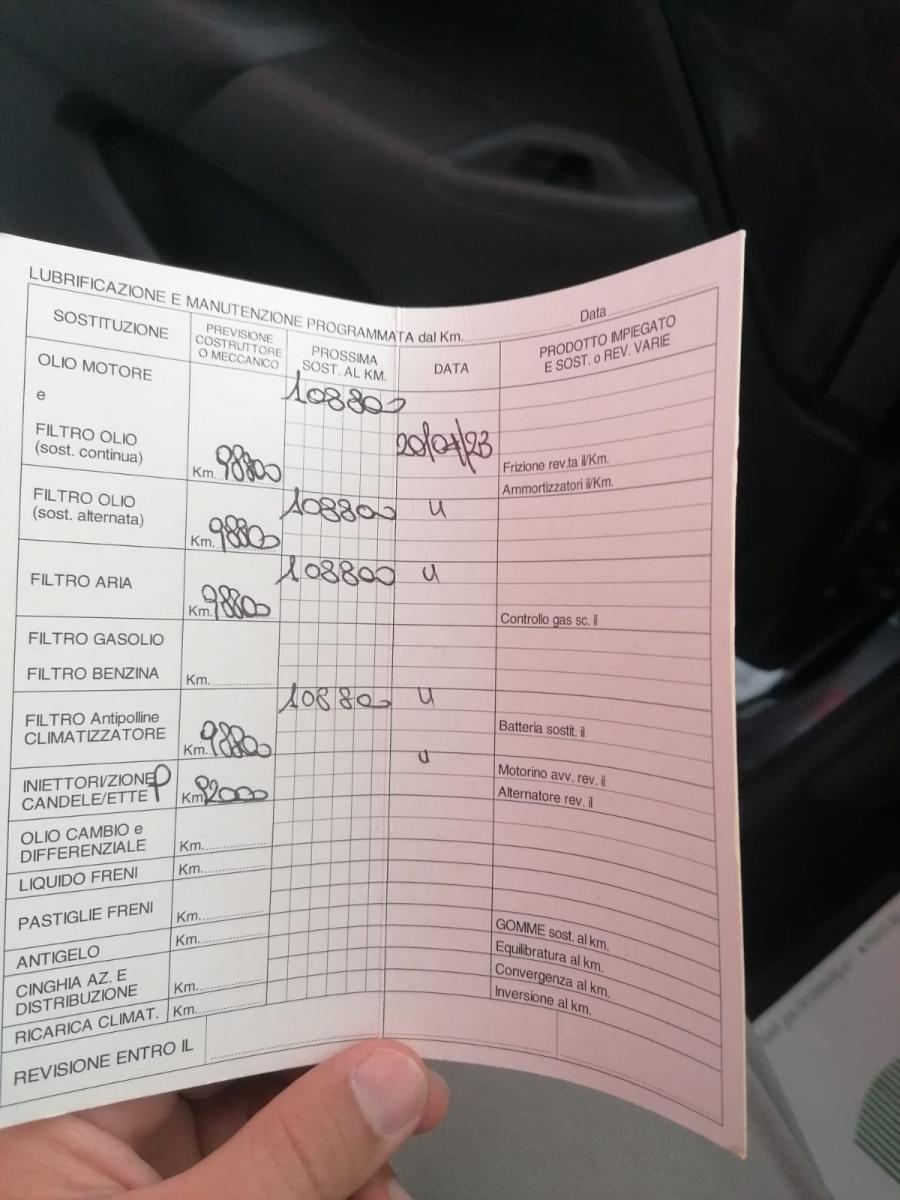 LUBRIFICAZIONE E MANUTENZIONE PROGRAMMATA dal Km. Data
SOSTITUZIONE
PREVISIONE
COSTRUTTORE
O MECCANICO
PROSSIMA
SOST. AL KM.
DATA
PRODOTTO IMPIEGATO
E SOST. o REV. VARIE
OLIO MOTORE
e
FILTRO OLIO
(sost. continua)
Km. 98800
108800
20/07/23
Frizione rev.ta il/Km.
Ammortizzatori il/Km.
FILTRO OLIO
(sost. alternata)
Km. 98800
108800
u
FILTRO ARIA
Km. 98800
108800
u
Controllo gas sc. il
FILTRO GASOLIO
FILTRO BENZINA
Km.
FILTRO Antipolline
CLIMATIZZATORE
Km. 98800
108800
u
Batteria sostit. il
INIETTORI/ZIONE
CANDELE/ETTE
Km 82000
u
Motorino avv. rev. il
Alternatore rev. il
OLIO CAMBIO e
DIFFERENZIALE
Km.
LIQUIDO FRENI
Km.
PASTIGLIE FRENI
Km.
ANTIGELO
Km.
CINGHIA AZ. E
DISTRIBUZIONE
Km.
RICARICA CLIMAT.
Km.
GOMME sost. al km.
Equilibratura al km.
Convergenza al km.
Inversione al km.
REVISIONE ENTRO IL